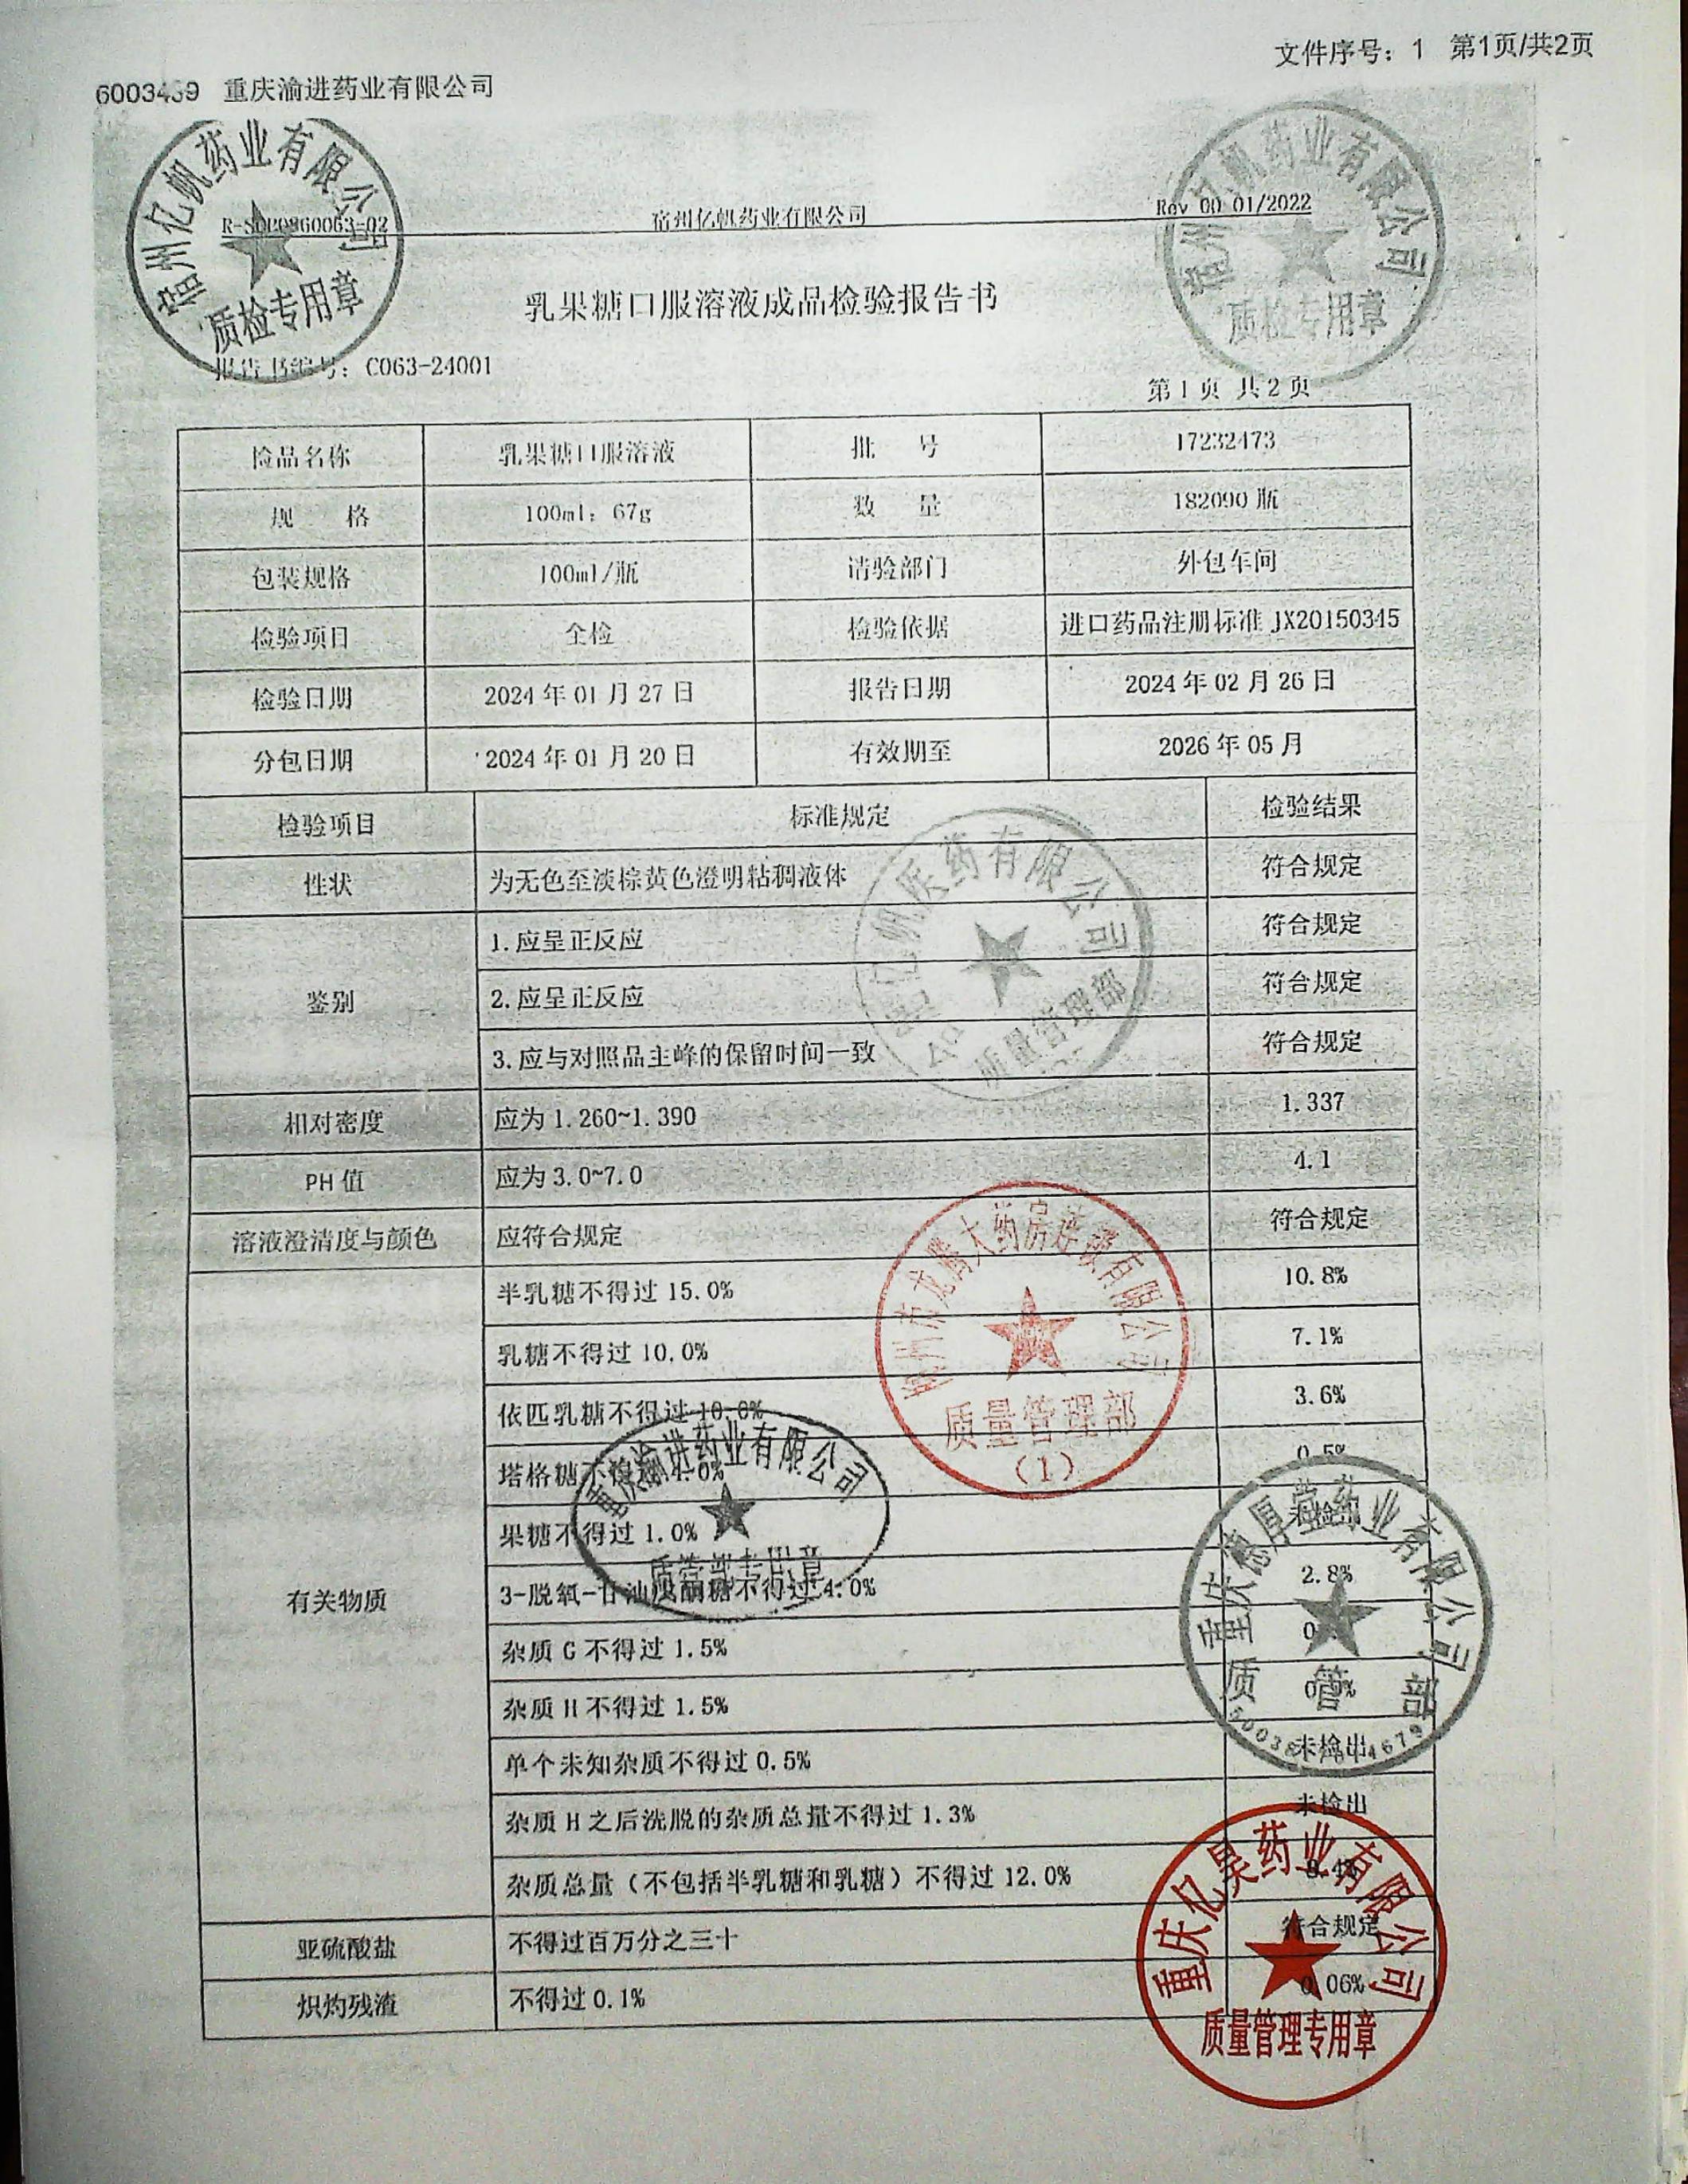 文件序号：1 第1页/共2页
6003439 重庆渝进药业有限公司
宿州亿帆药业有限公司
质检专用章
宿州亿帆药业有限公司
质检专用章
R-SOP0860063-02 宿州亿帆药业有限公司 Rev 00 01/2022
乳果糖口服溶液成品检验报告书
报告书编号：C063-24001
第1页 共2页
检品名称 乳果糖口服溶液 批 号 17232473
规 格 100ml：67g 数 量 182090瓶
包装规格 100ml/瓶 请验部门 外包车间
检验项目 全检 检验依据 进口药品注册标准 JX20150345
检验日期 2024年01月27日 报告日期 2024年02月26日
分包日期 2024年01月20日 有效期至 2026年05月
检验项目 标准规定 检验结果
性状 为无色至淡棕黄色澄明粘稠液体 符合规定
鉴别 1.应呈正反应 符合规定
2.应呈正反应 符合规定
3.应与对照品主峰的保留时间一致 符合规定
亿帆医药有限公司
质量管理部
相对密度 应为1.260~1.390 1.337
PH值 应为3.0~7.0 4.1
溶液澄清度与颜色 应符合规定 符合规定
有关物质 半乳糖不得过15.0% 10.8%
乳糖不得过10.0% 7.1%
依匹乳糖不得过10.0% 3.6%
塔格糖不得过4.0% 0.5%
果糖不得过1.0% 未检出
3-脱氧-甘油戊酮糖不得过4.0% 2.8%
杂质G不得过1.5%
杂质H不得过1.5%
单个未知杂质不得过0.5% 未检出
杂质H之后洗脱的杂质总量不得过1.3% 未检出
杂质总量（不包括半乳糖和乳糖）不得过12.0% 8.4%
亚硫酸盐 不得过百万分之三十 符合规定
炽灼残渣 不得过0.1% 0.06%
龙腾大药房连锁有限公司
质量管理部
（1）
重庆渝进药业有限公司
质管部专用章
重庆德厚堂药业有限公司
质管部
重庆亿昊药业有限公司
质量管理专用章